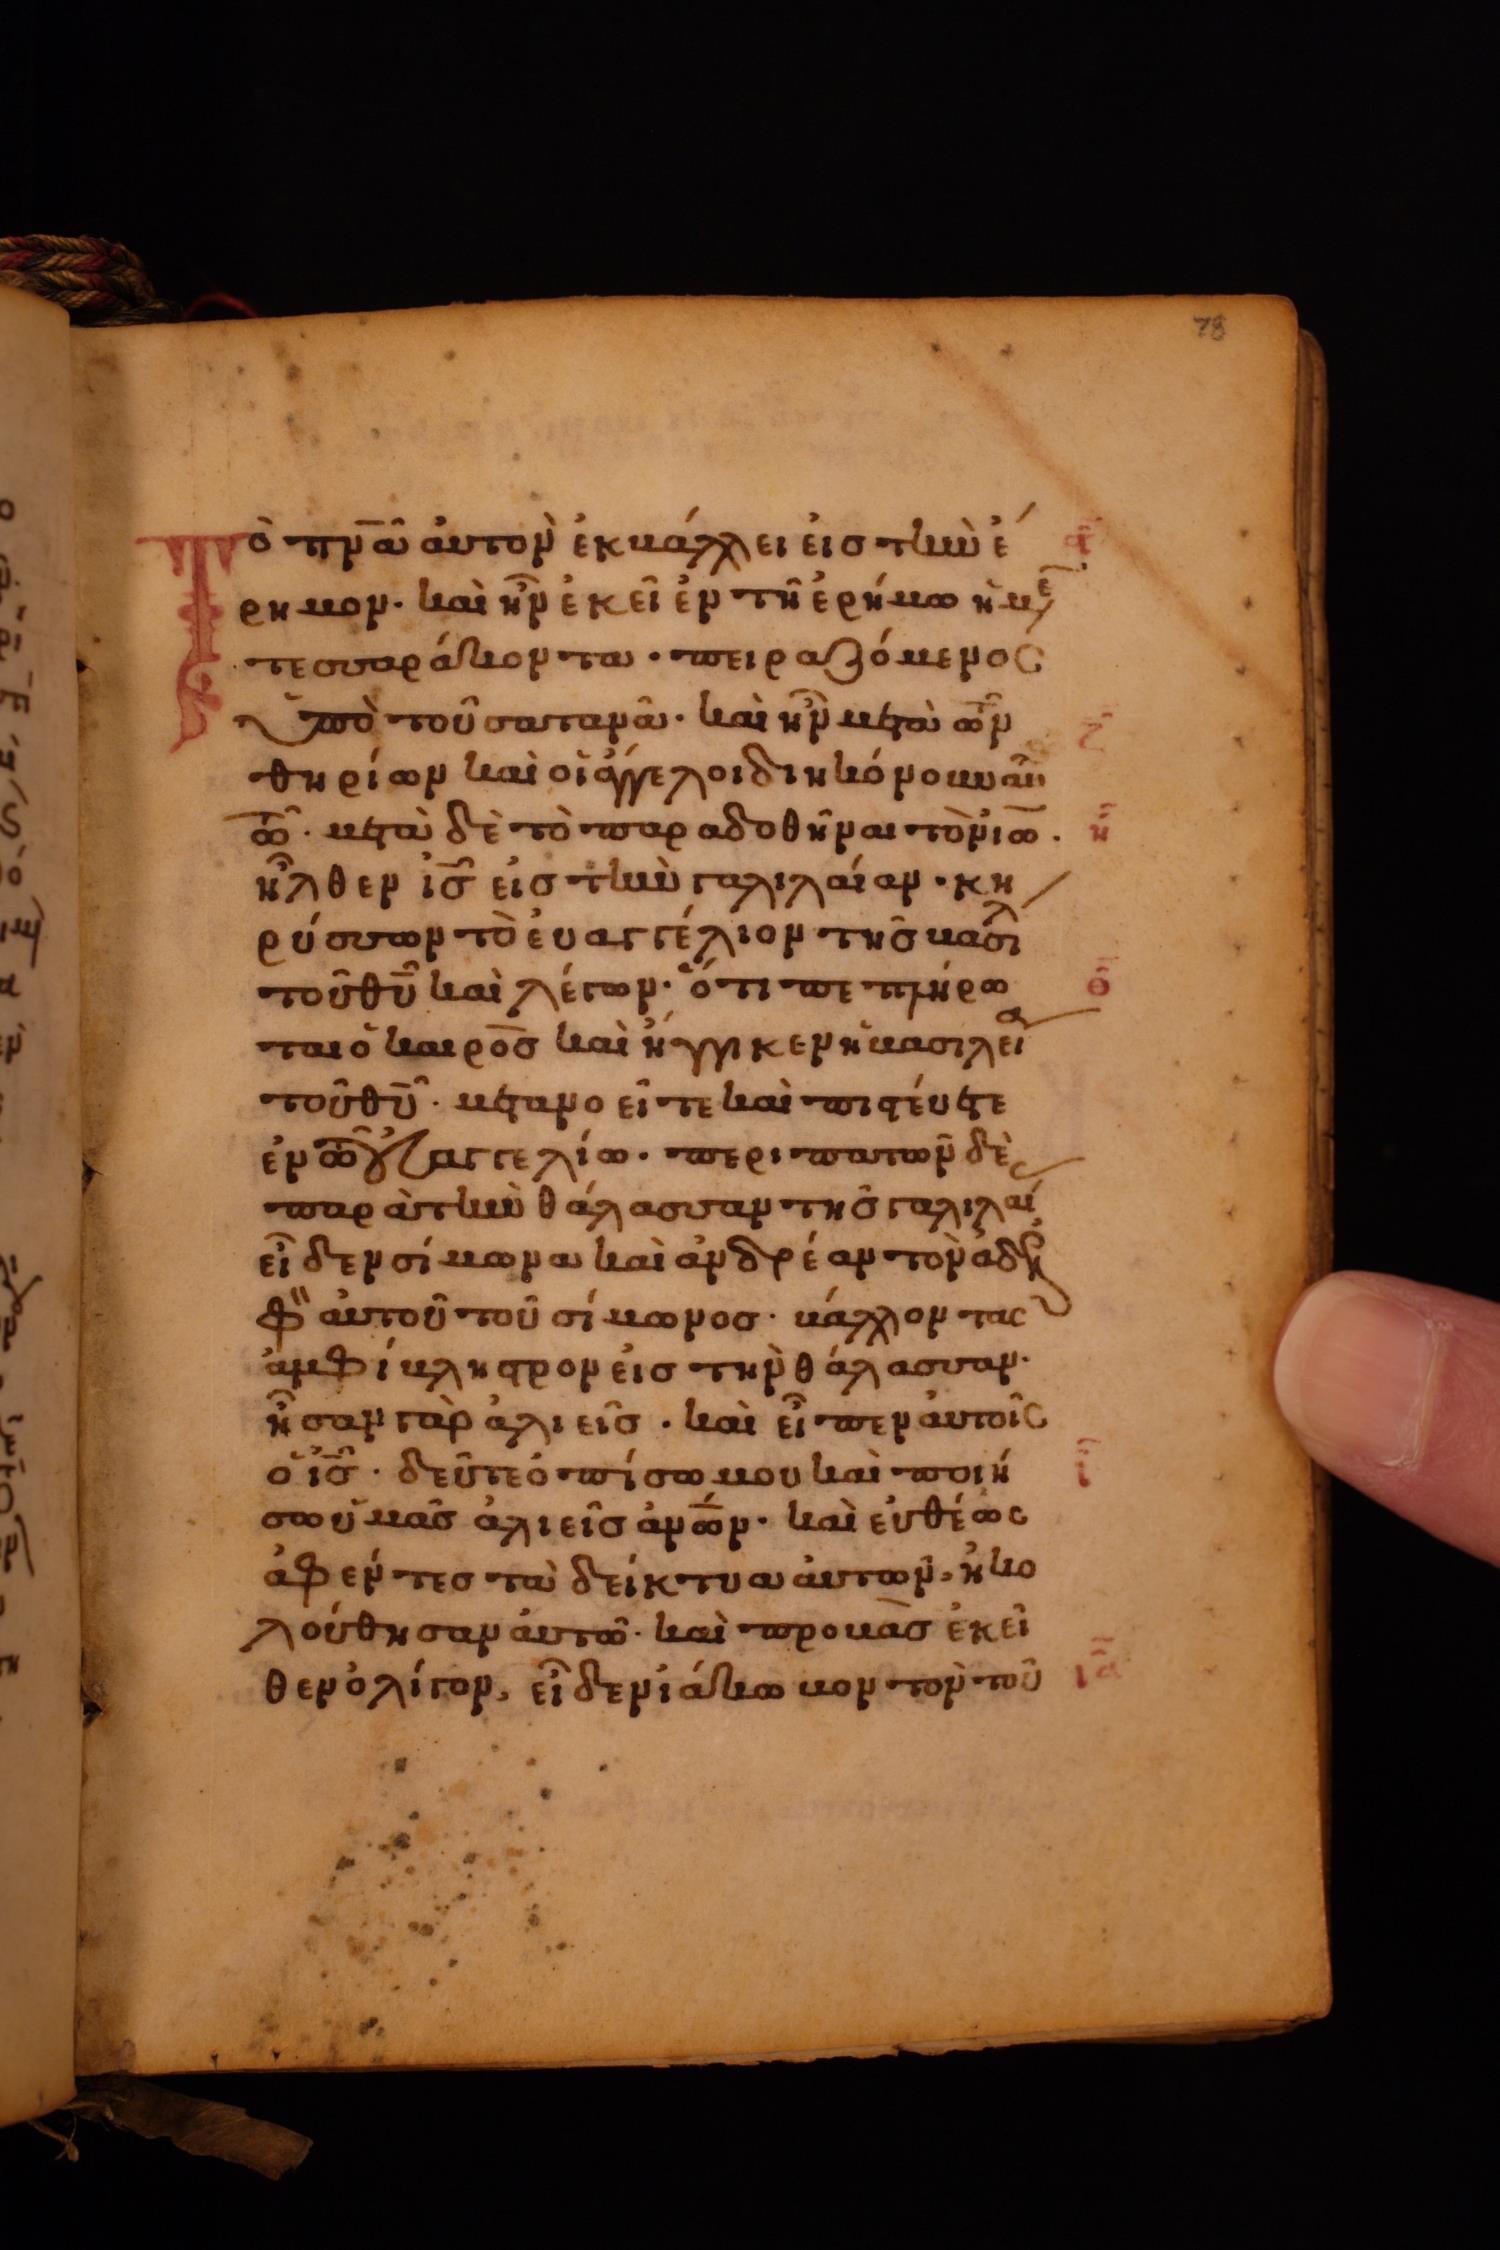 78
Τὸ πν̅α̑ ἀυτὸν ἐκβάλλει εἰσ τὴν ἔ
ρημον. καὶ ἦν ἐκεῖ ἐν τῆ ἐρήμω ἡμε
τεσσαράκοντα. πειραζόμενος
ὑπὸ τοῦ σατανᾶ. καὶ ἦν μετὰ τῶν
θηρίων καὶ οἱ ἄγγελοι διηκόνουν αὐ
τῶ. μετὰ δὲ τὸ παραδοθῆναι τὸν ἰω̅.
ἦλθεν ἰσ̅ εἰσ τὴν γαλιλαίαν. κη
ρύσσων τὸ ἐυαγγέλιον τῆσ βασιλ
τοῦ θυ̅ καὶ λέγων. ὅτι πεπλήρω
ται ὁ καιρὸσ καὶ ἤγγικεν ἡ βασιλεία
τοῦ θυ̅. μετανοεῖτε καὶ πιστέυετε
ἐν τῶ ἐυαγγελίω. περιπατῶν δὲ
παρὰ τὴν θάλασσαν τῆσ γαλιλαί
εἶδεν σίμωνα καὶ ἀνδρέαν τὸν ἀδελ
φὸν ἀυτοῦ τοῦ σίμωνοσ. βάλλοντας
ἀμφίβληστρον εἰσ τὴν θάλασσαν.
ἦσαν γὰρ ἁλιεῖσ. καὶ εἶπεν ἀυτοῖς
ὁ ἰσ̅. δεῦτε ὀπίσω μου καὶ ποιή
σω ὑμᾶσ ἁλιεῖσ ἀνω̅ν. καὶ εὐθέως
ἀφέντεσ τὰ δείκτυα ἀυτῶν, ἠκο
λούθησαν ἀυτῶ. καὶ προβὰσ ἐκεῖ
θεν ὀλίγον, εἶδεν ἰάκωβον τὸν τοῦ